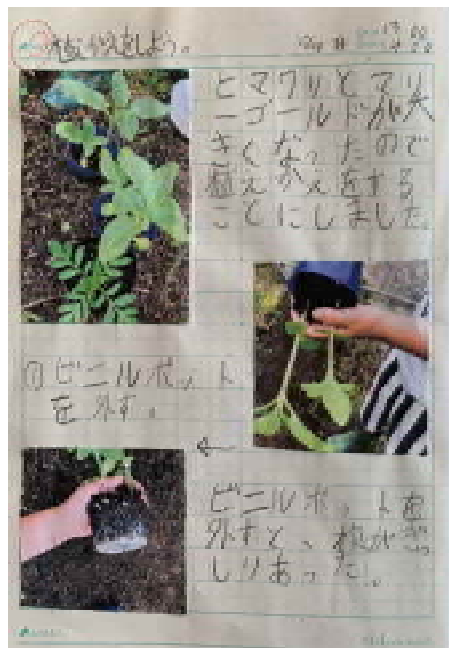 植えかえをしよう。
ヒマワリとマリ
ーゴールドが大
きくなったので
植えかえをする
ことにしました。
①ビニルポット
を外す。
←
ビニルポットを
外すと、根が
しりあった。